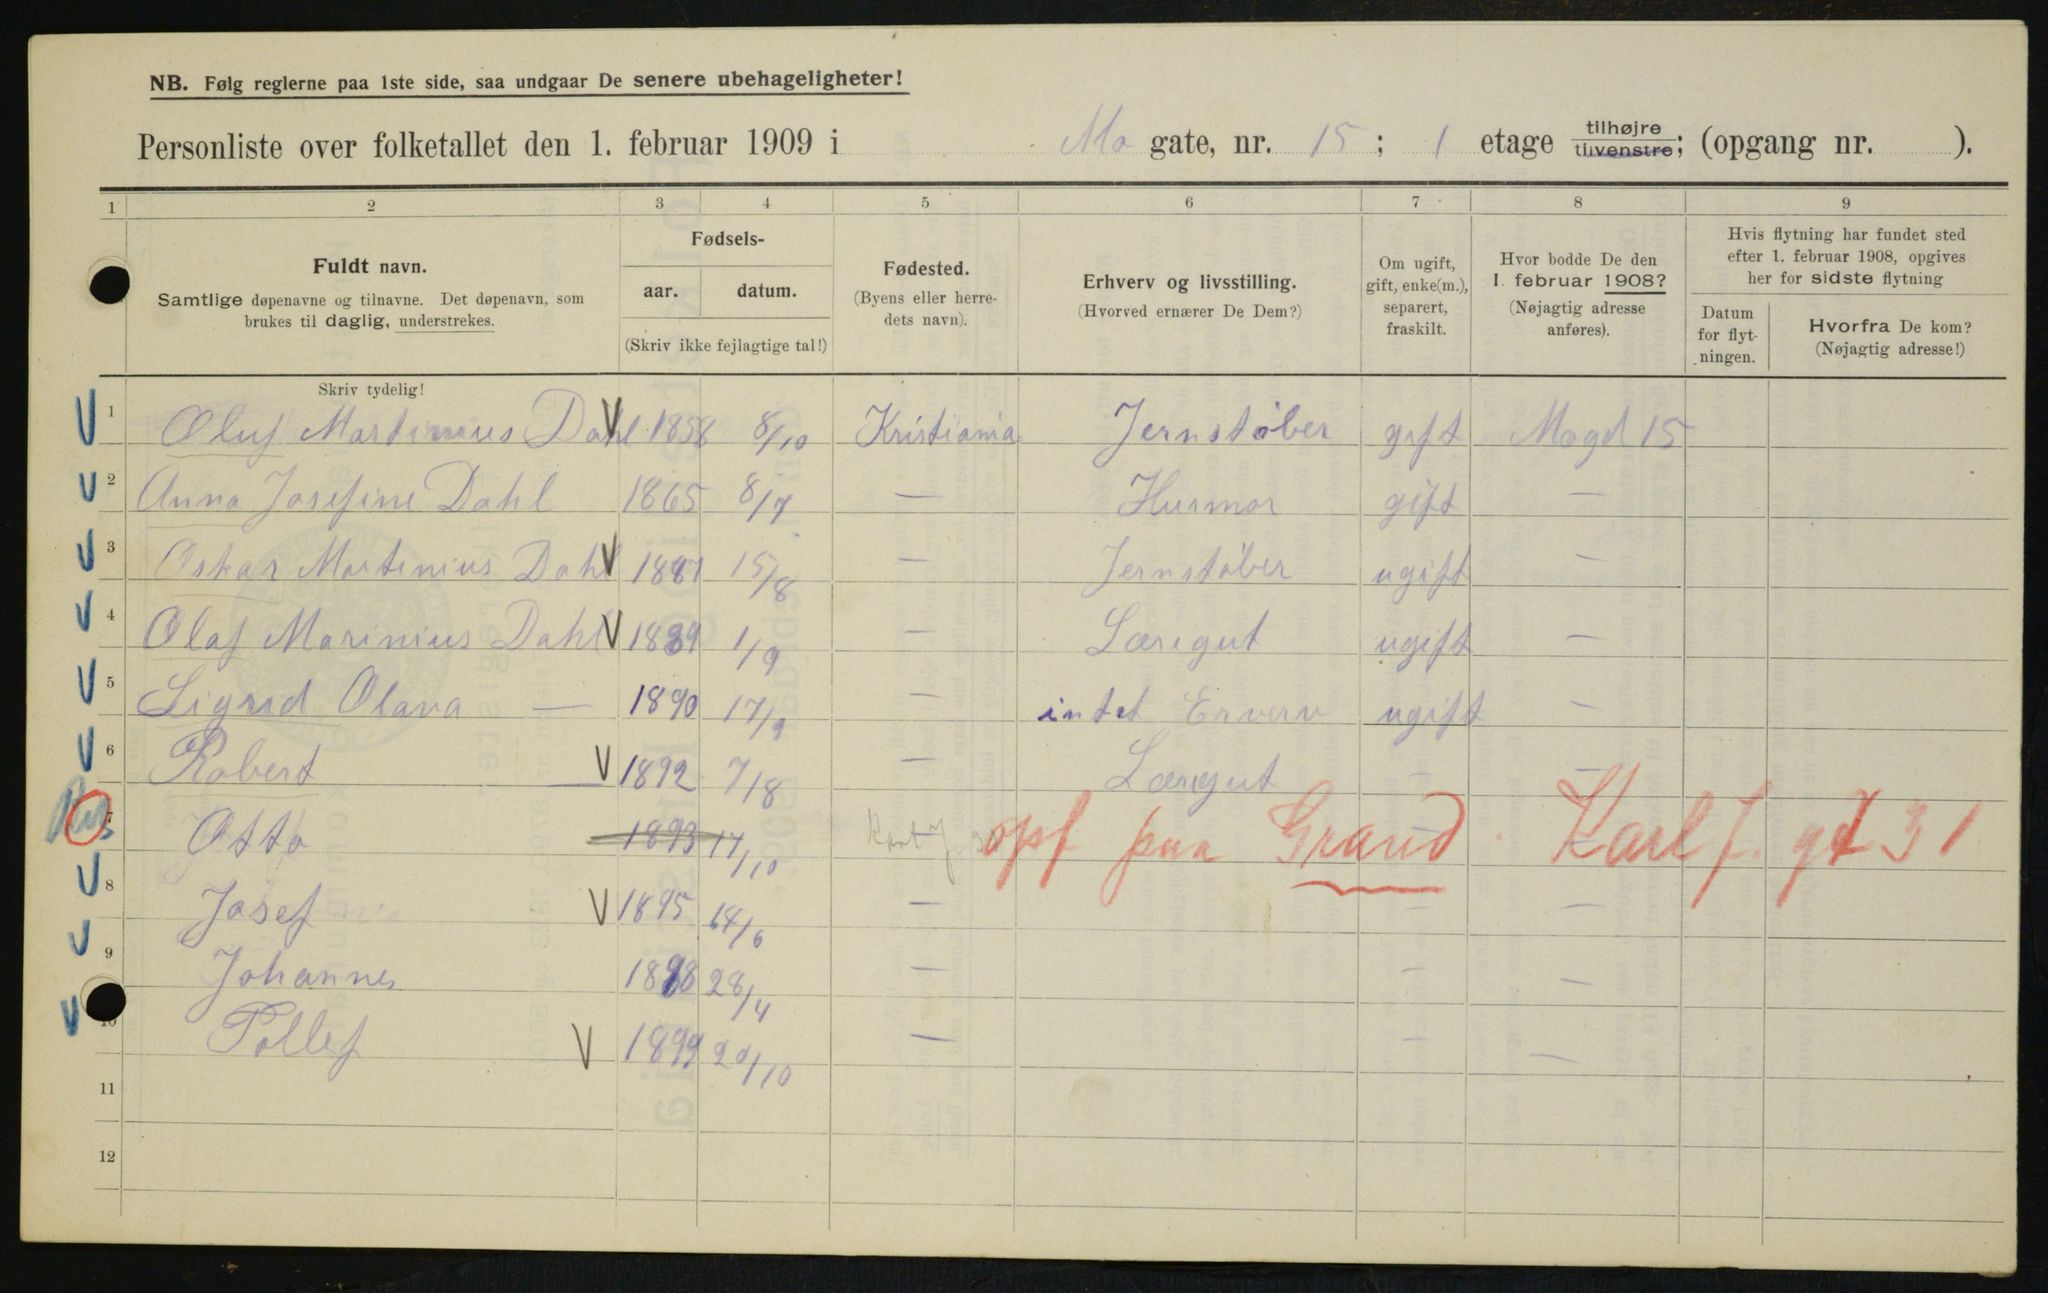 NB. Følg reglerne paa 1ste side, saa undgaar De senere ubehageligheter!
Personliste over folketallet den 1. februar 1909 i Mo gate, nr. 15; 1 etage tilhøjre tilvenstre; (opgang nr. ).
1 2 3 4 5 6 7 8 9
Fuldt navn.
Samtlige døpenavne og tilnavne. Det døpenavn, som
brukes til daglig, understrekes.
Skriv tydelig!
Fødsels-
aar. datum.
(Skriv ikke fejlagtige tal!)
Fødested.
(Byens eller herre-
dets navn).
Erhverv og livsstilling.
(Hvorved ernærer De Dem?)
Om ugift,
gift, enke(m.),
separert,
fraskilt.
Hvor bodde De den
1. februar 1908?
(Nøjagtig adresse
anføres).
Hvis flytning har fundet sted
efter 1. februar 1908, opgives
her for sidste flytning
Datum
for flyt-
ningen.
Hvorfra De kom?
(Nøjagtig adresse!)
V 1 Oluf Martinius Dahl V 1858 8/10 Kristiania Jernstøber gift Mogd 15
V 2 Anna Josefine Dahl 1865 8/7 — Husmor gift —
V 3 Oskar Martinius Dahl V 1887 15/8 — Jernstøber ugift —
V 4 Olaf Marinius Dahl V 1889 1/9 — Læregut ugift —
V 5 Sigrid Olava — 1890 17/9 — intet Erverv ugift —
V 6 Robert — V 1892 7/8 — Læregut — —
7 Otto 1893 17/10 — opf paa Grand. Karl J. gt 31
V 8 Josef V 1895 14/6 — — —
V 9 Johannes 1898 28/4 — — —
V 10 Tollef V 1899 20/10 — — —
11
12